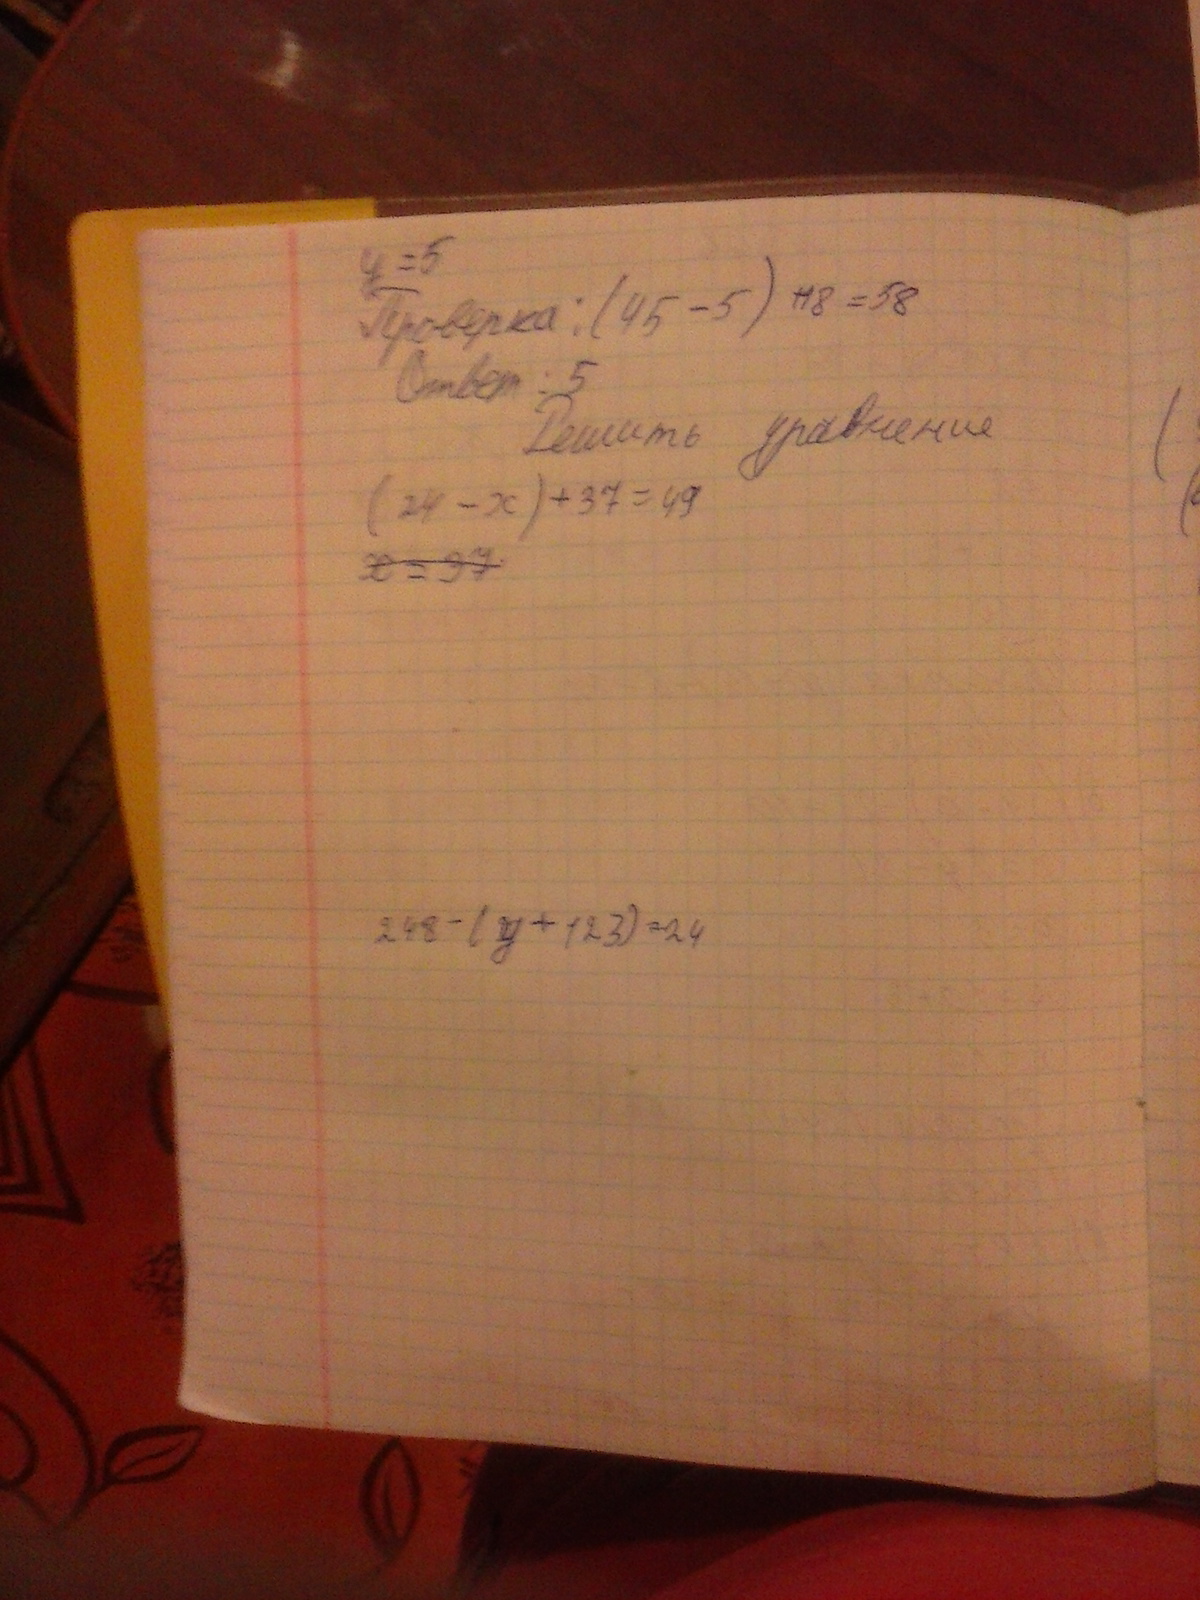 y = 5
Проверка: (45 - 5) + 18 = 58
Ответ: 5
Решить уравнение
(24 - x) + 37 = 49
x = 37
248 - (y + 123) = 24